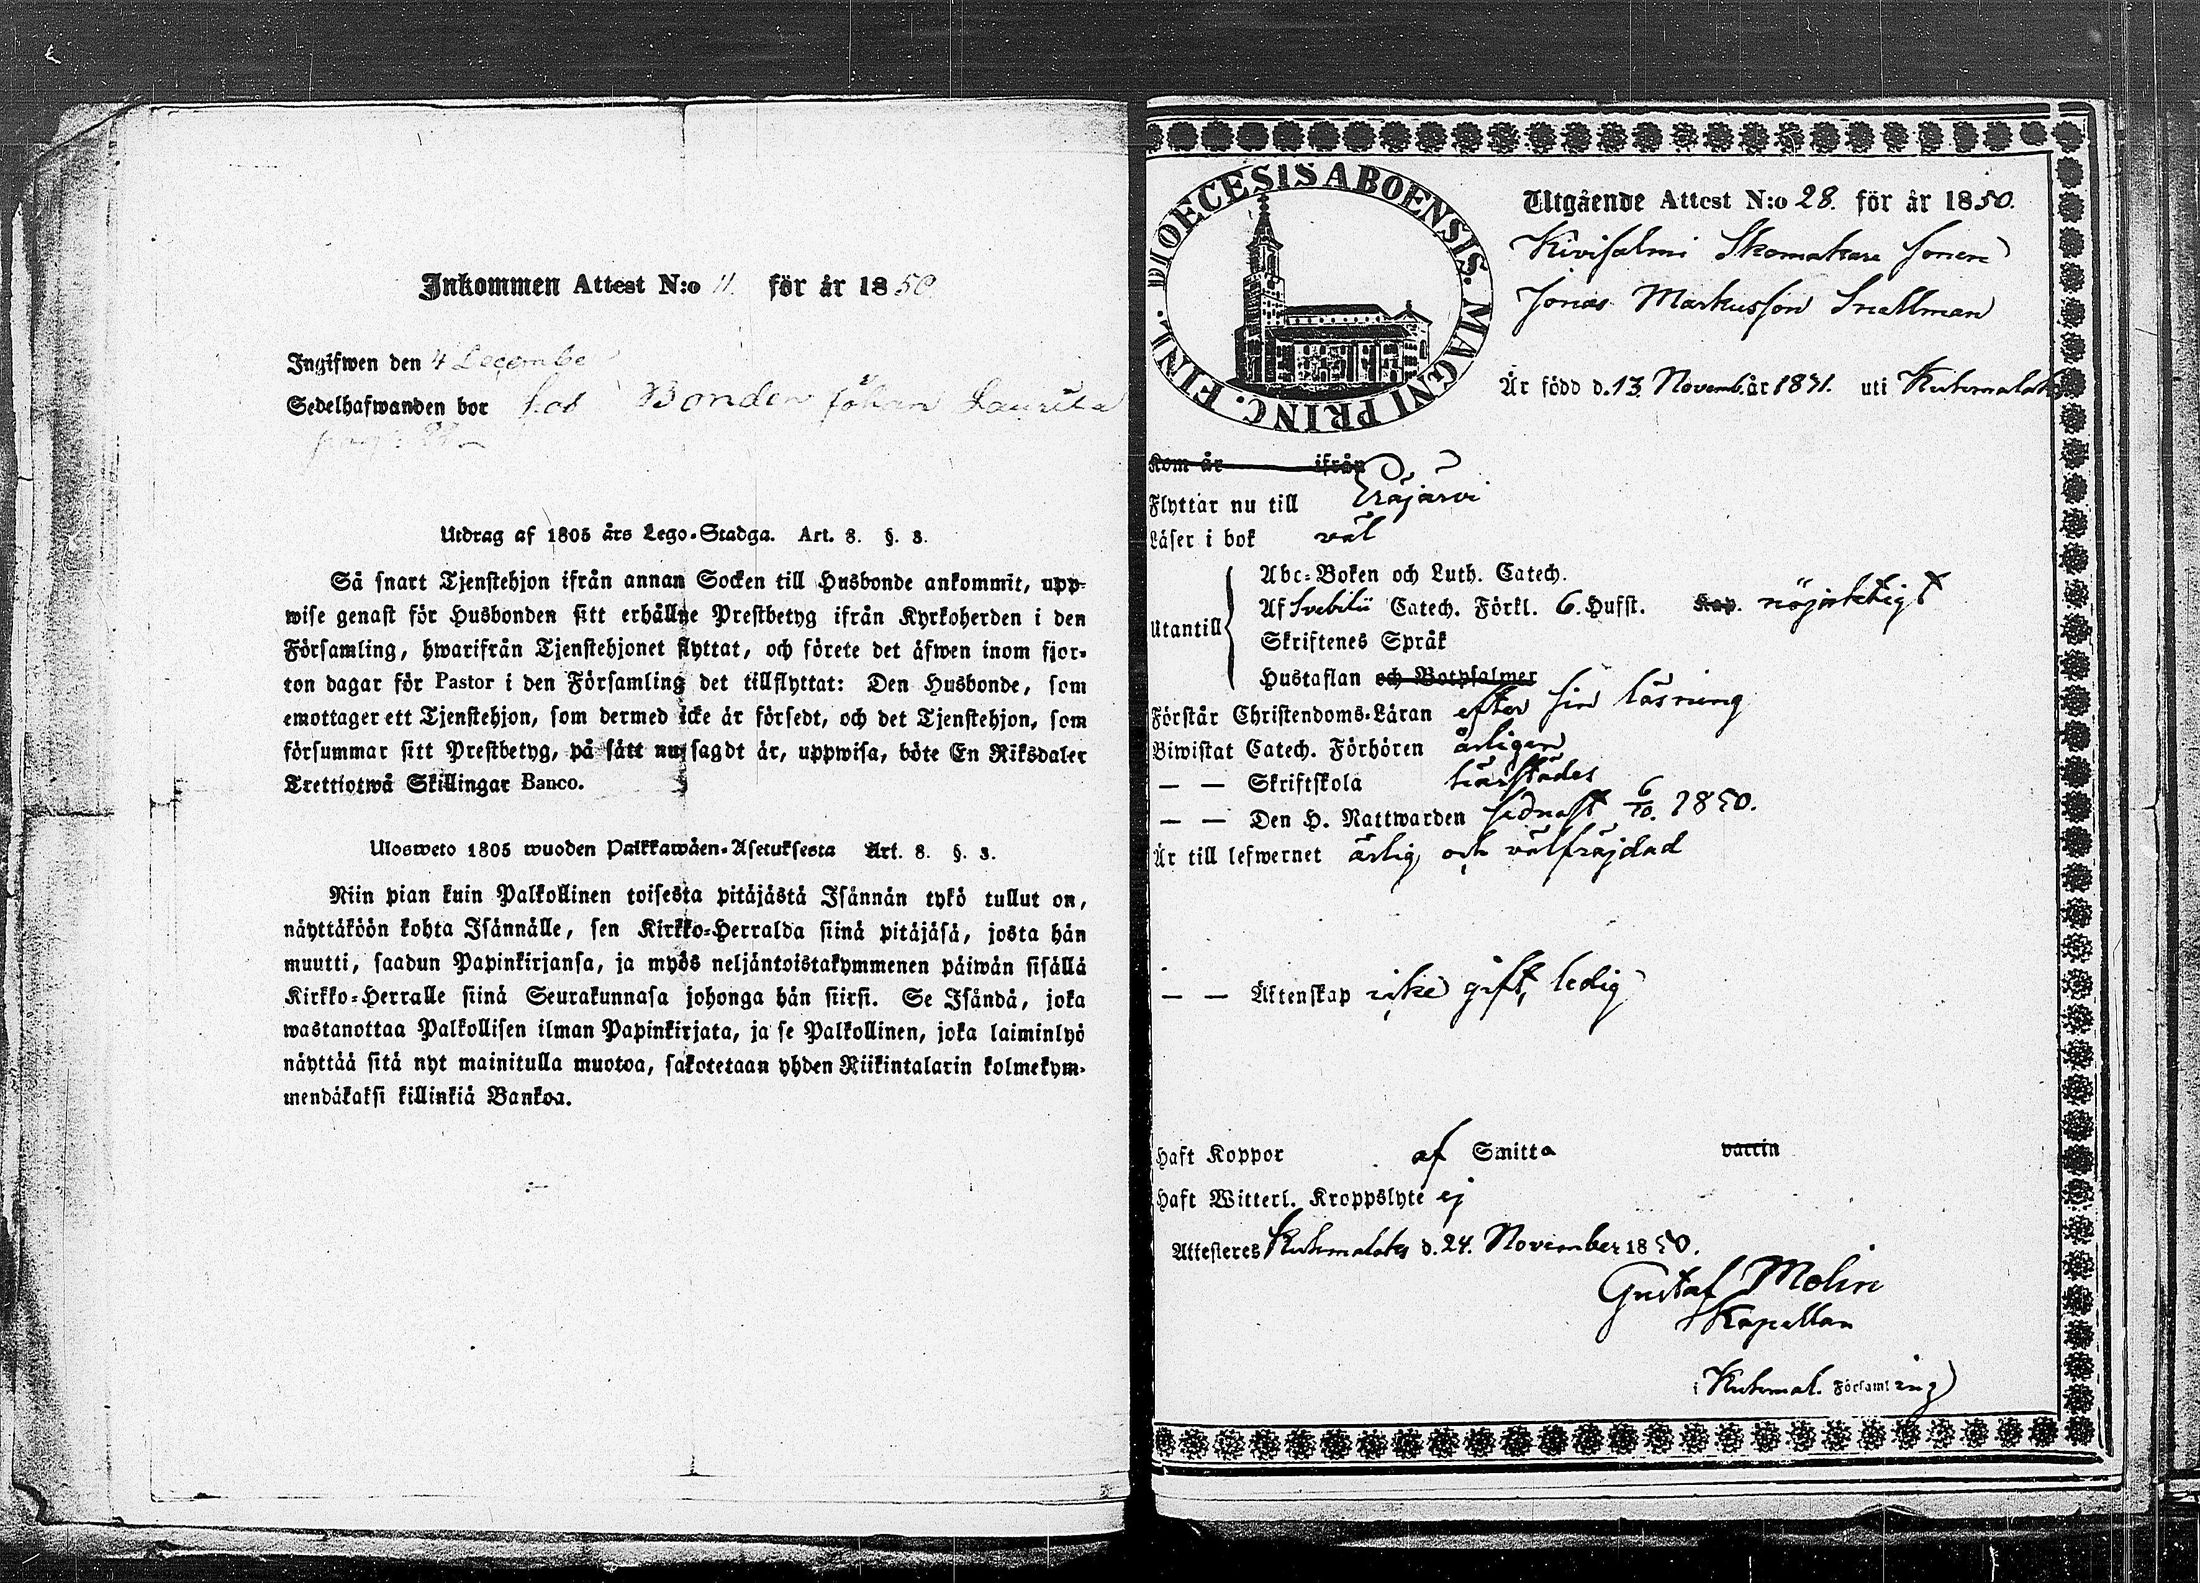 Inkommen Attest N:o 11. för år 1850
Ingifwen den 4 December
Sedelhafwanden bor hos Bonden Johan Laurila
pag:
Utdrag af 1805 års Lego-Stadga. Art. 8. §. 3.
Så snart Tjenstehjon ifrån annan Socken till Husbonde ankommit, upp-
wise genast för Husbonden sitt erhållne Prestbetyg ifrån Kyrkoherden i den
Församling, hwarifrån Tjenstehjonet flyttat, och förete det äfwen inom fjor-
ton dagar för Pastor i den Församling det tillflyttat: Den Husbonde, som
emottager ett Tjenstehjon, som dermed icke är försedt, och det Tjenstehjon, som
försummar sitt Prestbetyg, på sätt nu sagdt är, uppwisa, böte En Riksdaler
Trettiotwå Skillingar Banco.
Ulosweto 1805 wuoden Palkkawäen-Asetuksesta Art. 8. §. 3.
Niin pian kuin Palkollinen toisesta pitäjästä Isännän tykö tullut on,
näyttäköön kohta Isännälle, sen Kirkko-Herralda siinä pitäjäsä, josta hän
muutti, saadun Papinkirjansa, ja myös neljäntoistakymmenen päiwän sisällä
Kirkko-Herralle siinä Seurakunnasa johonga hän siirsi. Se Isändä, joka
wastanottaa Palkollisen ilman Papinkirjata, ja se Palkollinen, joka laiminlyö
näyttää sitä nyt mainitulla muotoa, sakotetaan yhden Riikintalarin kolmekym-
mendäkaksi killinkiä Bankoa.
DIOECESIS ABOENSIS. MAGNI PRINC. FINL.
Utgående Attest N:o 28. för år 1850.
Kivisalmi Skomakare sonen
Jonas Markusson Snellman
Är född d. 13 Novemb. år 1831. uti Kuhmalaks
Kom år ifrån
Flyttar nu till Eräjärvi
Läser i bok väl
Utantill
Abc-Boken och Luth. Catech.
Af Svebilii Catech. Förkl. 6. Hufst. Kap. nöjaktigt
Skriftenes Språk
Hustaflan och Botpsalmer
Förstår Christendoms-Läran efter sin läsning
Biwistat Catech. Förhören årligen
— — Skriftskola härstädes
— — Den H. Nattwarden sednast 6/10. 1850.
Är till lefwernet ärlig och välfräjdad
— — Äktenskap icke gift, ledig
Haft Koppor af Smitta vaccin
Haft Witterl. Kroppslyte ej
Attesteres Kuhmalaks d. 24. November 1850.
Gustaf Molin
Kapellan
i Kuhmal. Församling